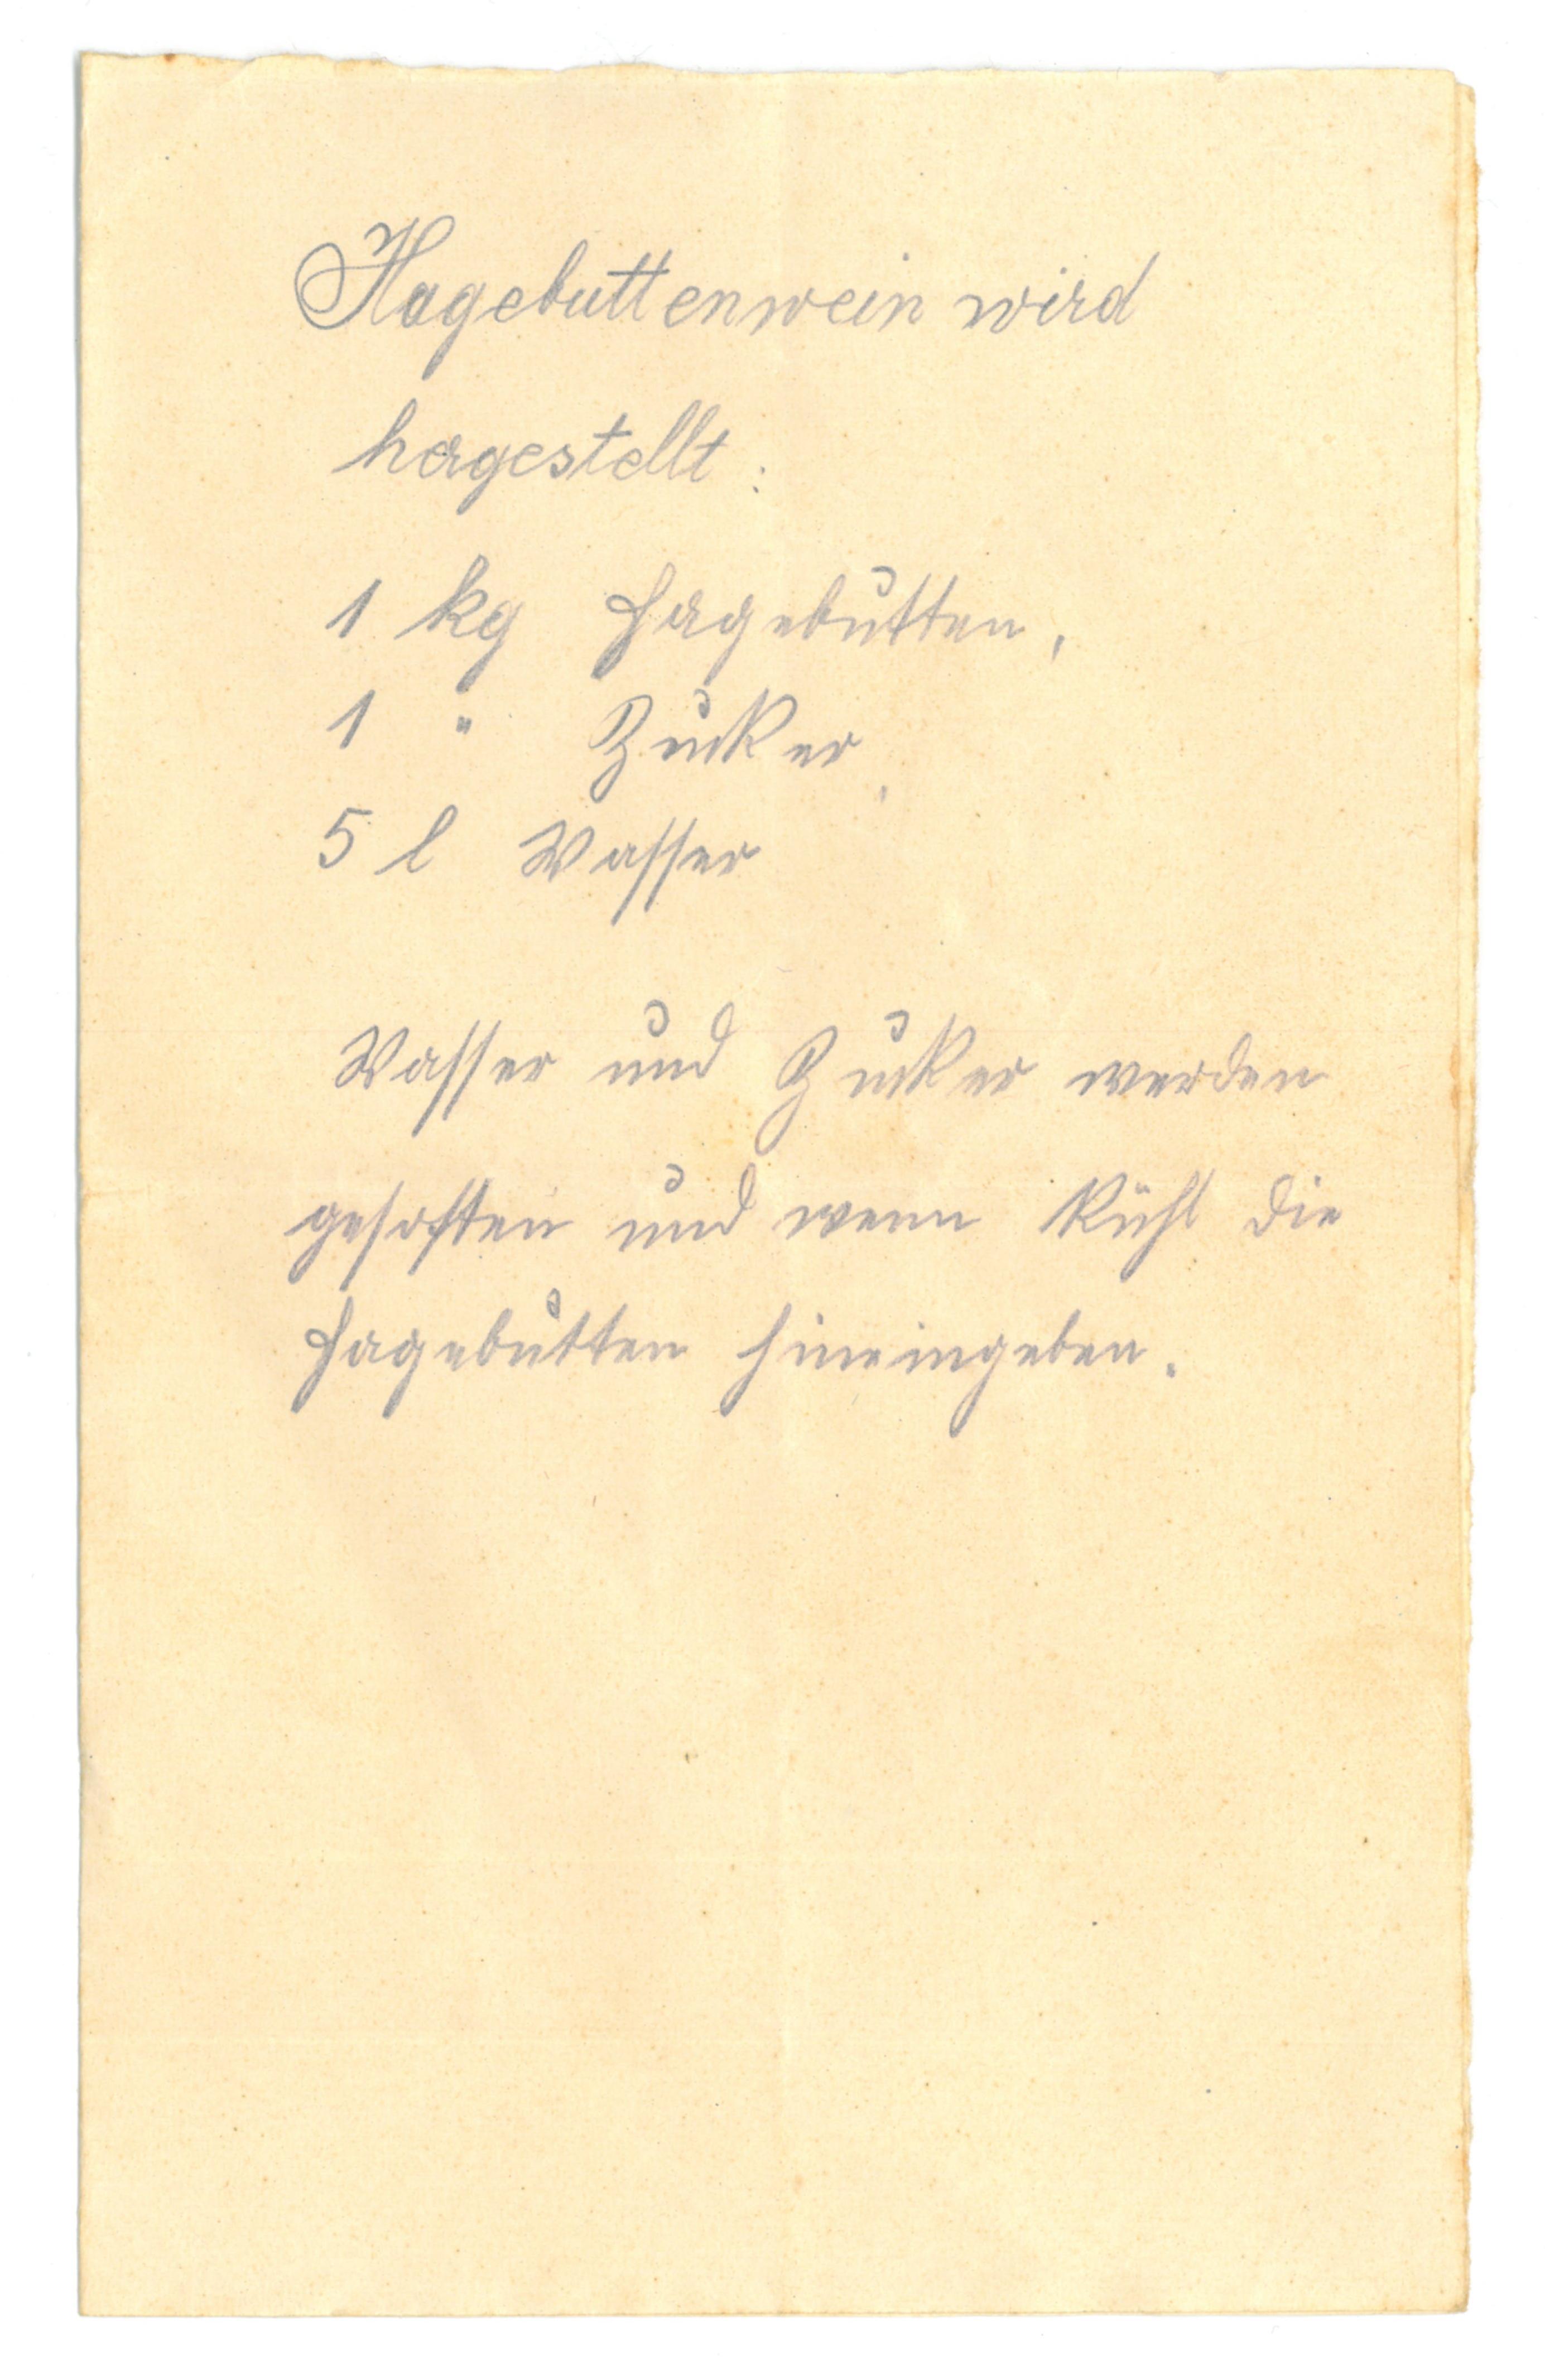 Hagebuttenwein wird
hergestellt:
1 kg Hagebutten,
1 " Zucker,
5 l Wasser
Wasser und Zucker werden
gesotten und wenn kühl die
Hagebutten hineingeben.